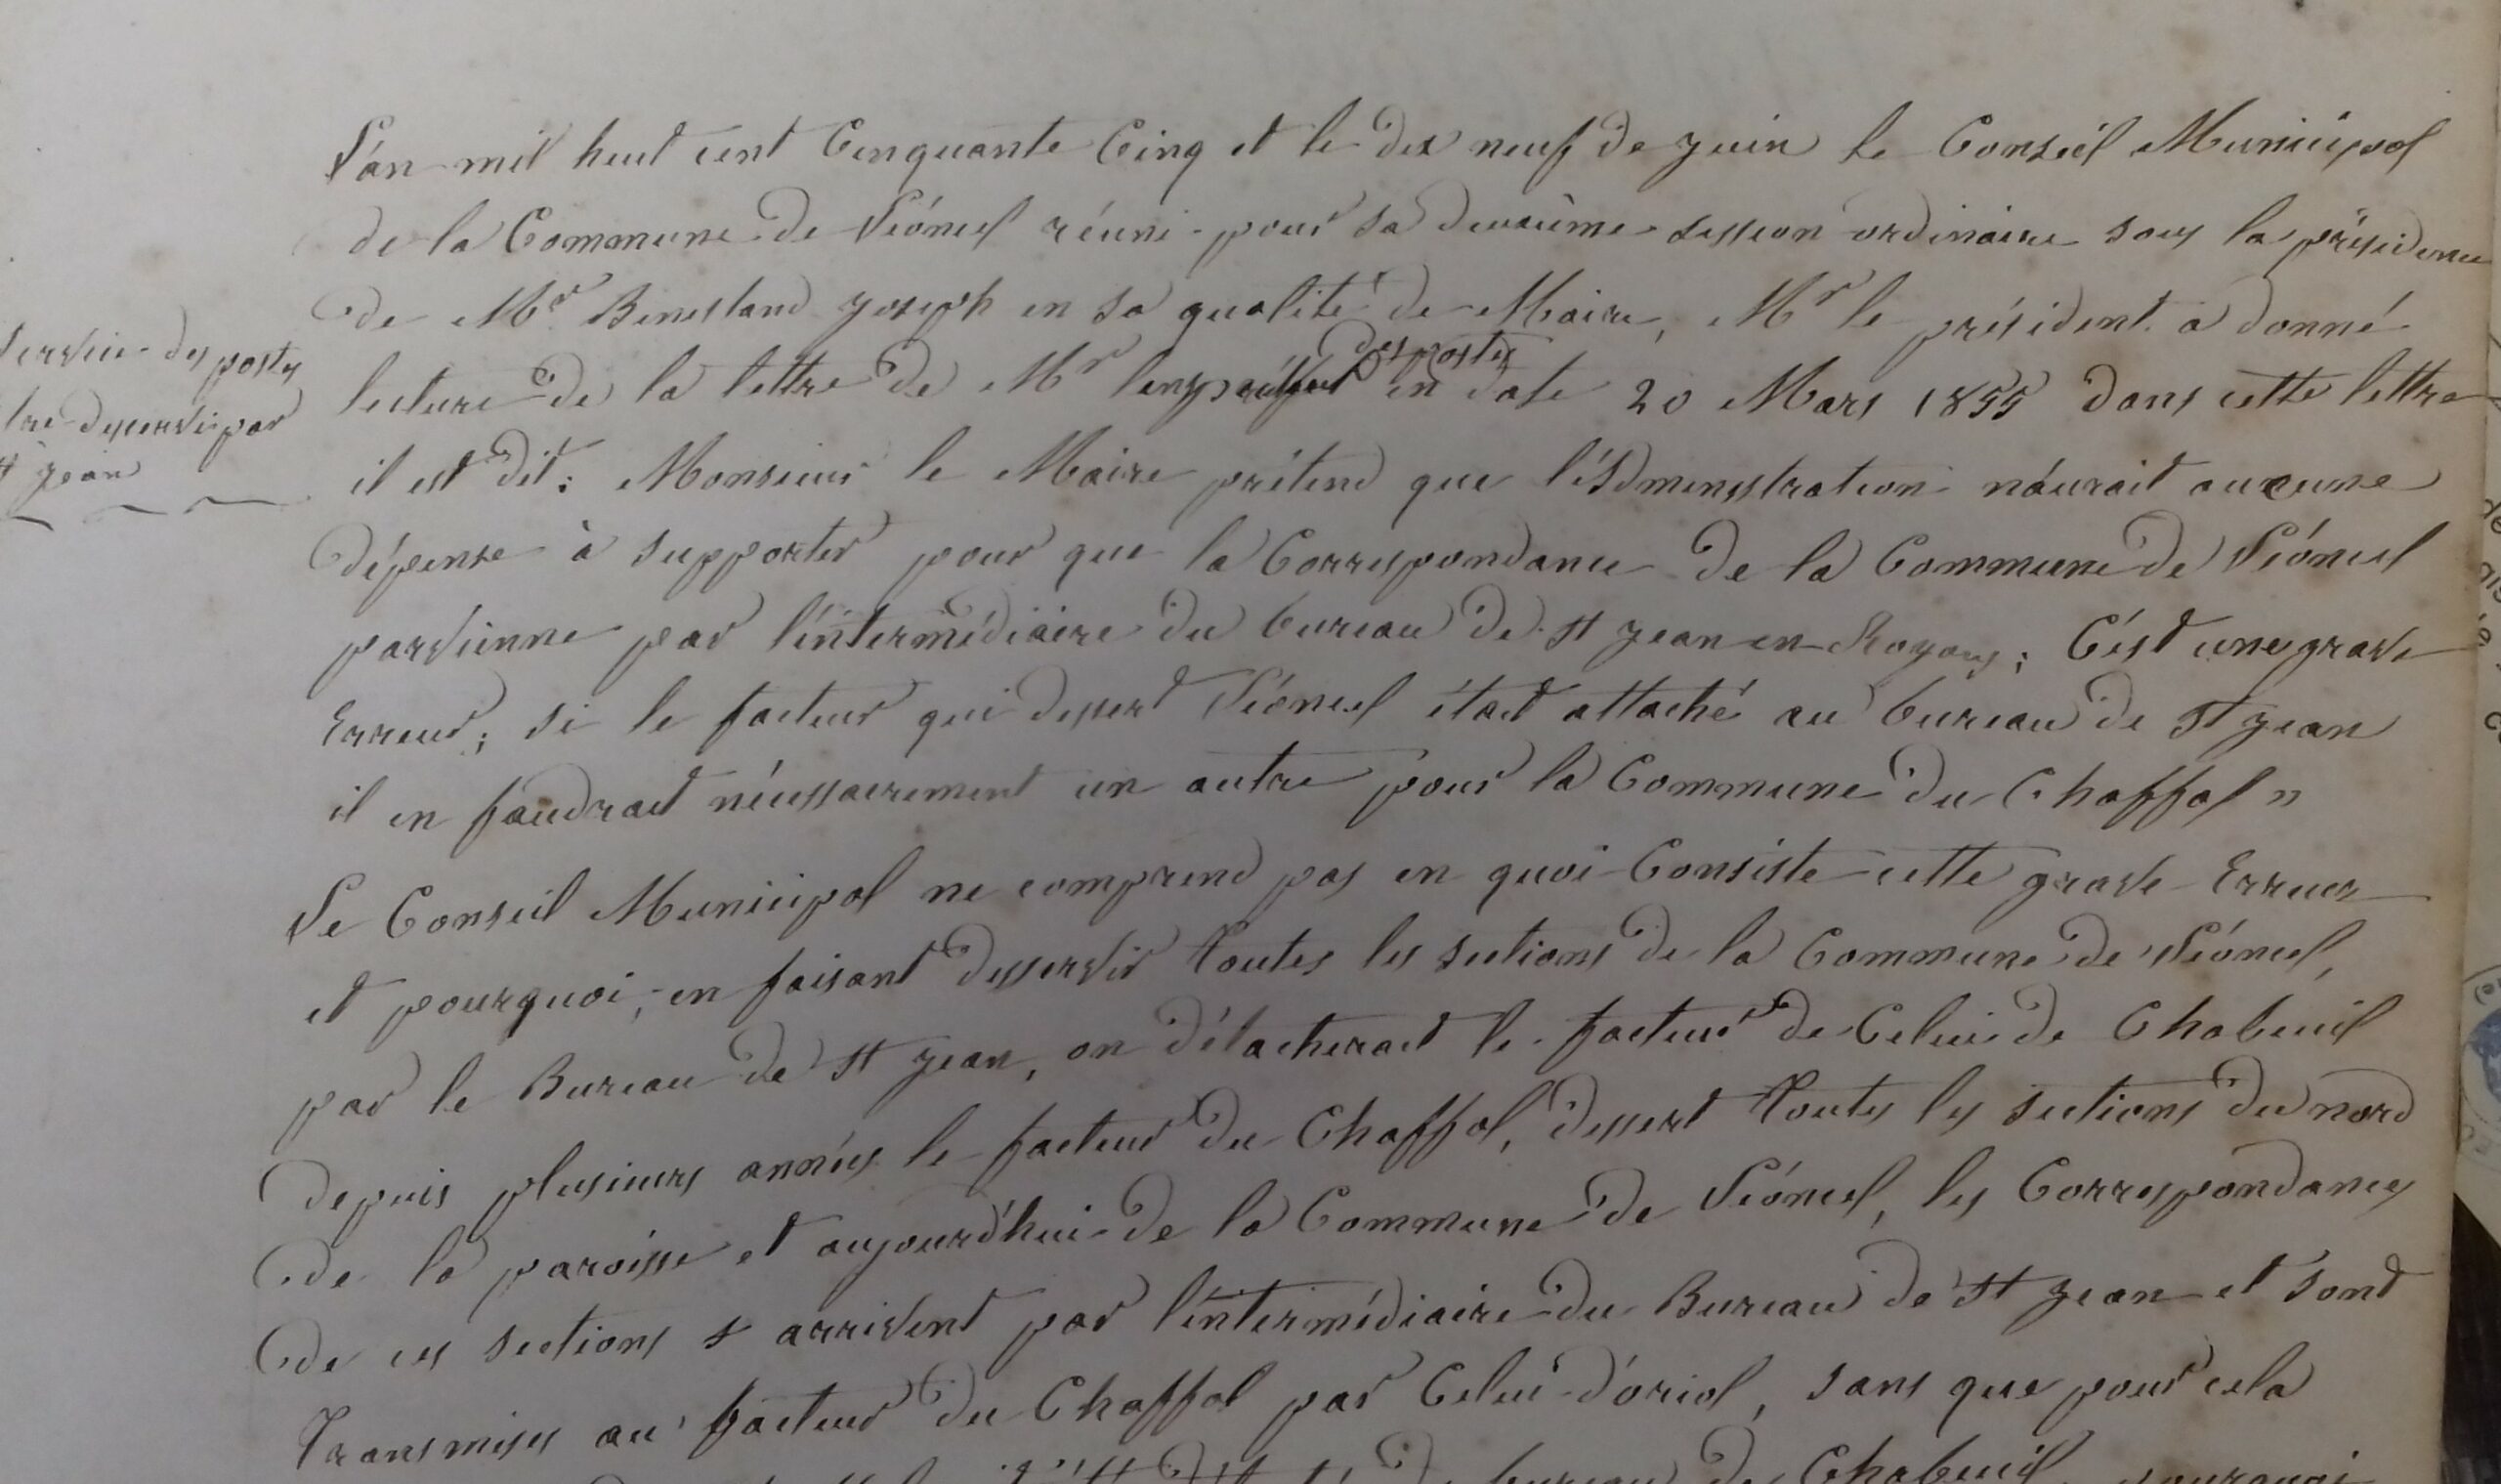 L'an mil huit cent Cinquante Cinq et le dix neuf de juin le Conseil Municipal
de la Commune de Léoncel réuni pour sa deuxième session ordinaire sous la présidence
de Mr Joseph en sa qualité de Maire, Mr le président a donné
service des postes
des postes
lecture de la lettre de Mr en date 20 Mars 1855 dans cette lettre
desservi par
il est dit: Monsieur le Maire prétend que l'Administration n'aurait aucune
st jean
dépense à supporter pour que la Correspondance de la Commune de Léoncel
parvienne par l'intermédiaire du bureau de st jean en Royans; C'est une grave
Erreur; si le facteur qui dessert Léoncel était attaché au bureau de st jean
il en faudrait nécessairement un autre pour la Commune du Chaffal "
Le Conseil Municipal ne comprend pas en quoi Consiste cette grave Erreur
et pourquoi, en faisant desservir toutes les sections de la Commune de Léoncel,
par le Bureau de st jean, on détacherait le facteur de Celui de Chabeuil
depuis plusieurs années le facteur du Chaffal, dessert toutes les sections du nord
de la paroisse et aujourd'hui de la Commune de Léoncel, les Correspondances
de ces sections arrivent par l'intermédiaire du Bureau de st jean et sont
transmises au facteur du Chaffal par Celui d'oriol, sans que pour cela
bureau de Chabeuil, pourquoi